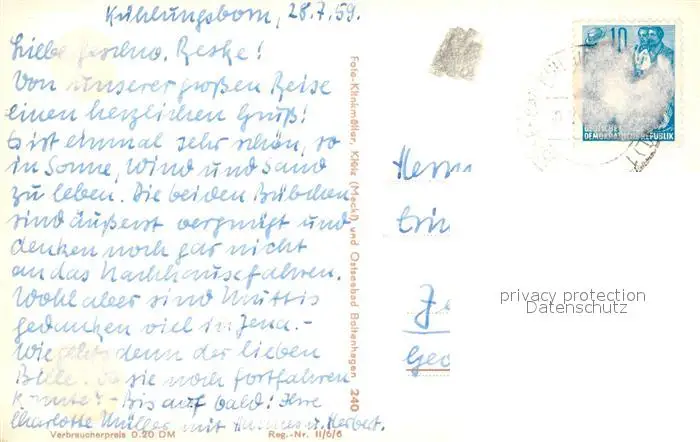 Kühlungsborn, 28.7.59.
Liebe Geschw. Reske!
Von unserer großen Reise
einen herzlichen Gruß!
Es ist einmal sehr schön, so
in Sonne, Wind und Sand
zu leben. Die beiden Bübchen
sind äußerst vergnügt und
denken noch gar nicht
an das Nachhausefahren.
Wohl aber sind Muttis
Gedanken viel in Jena. –
Wie geht's denn der lieben
sie noch fortfahren
konnte? – Bis auf bald! Ihre
Charlotte Müller mit u. Herbert.
Verbraucherpreis 0.20 DM
Reg.-Nr. II/6/6
Foto-Klinkmüller, Klütz (Meckl) und Ostseebad Boltenhagen 240
10
DEUTSCHE
DEMOKRATISCHE REPUBLIK
privacy protection
Datenschutz